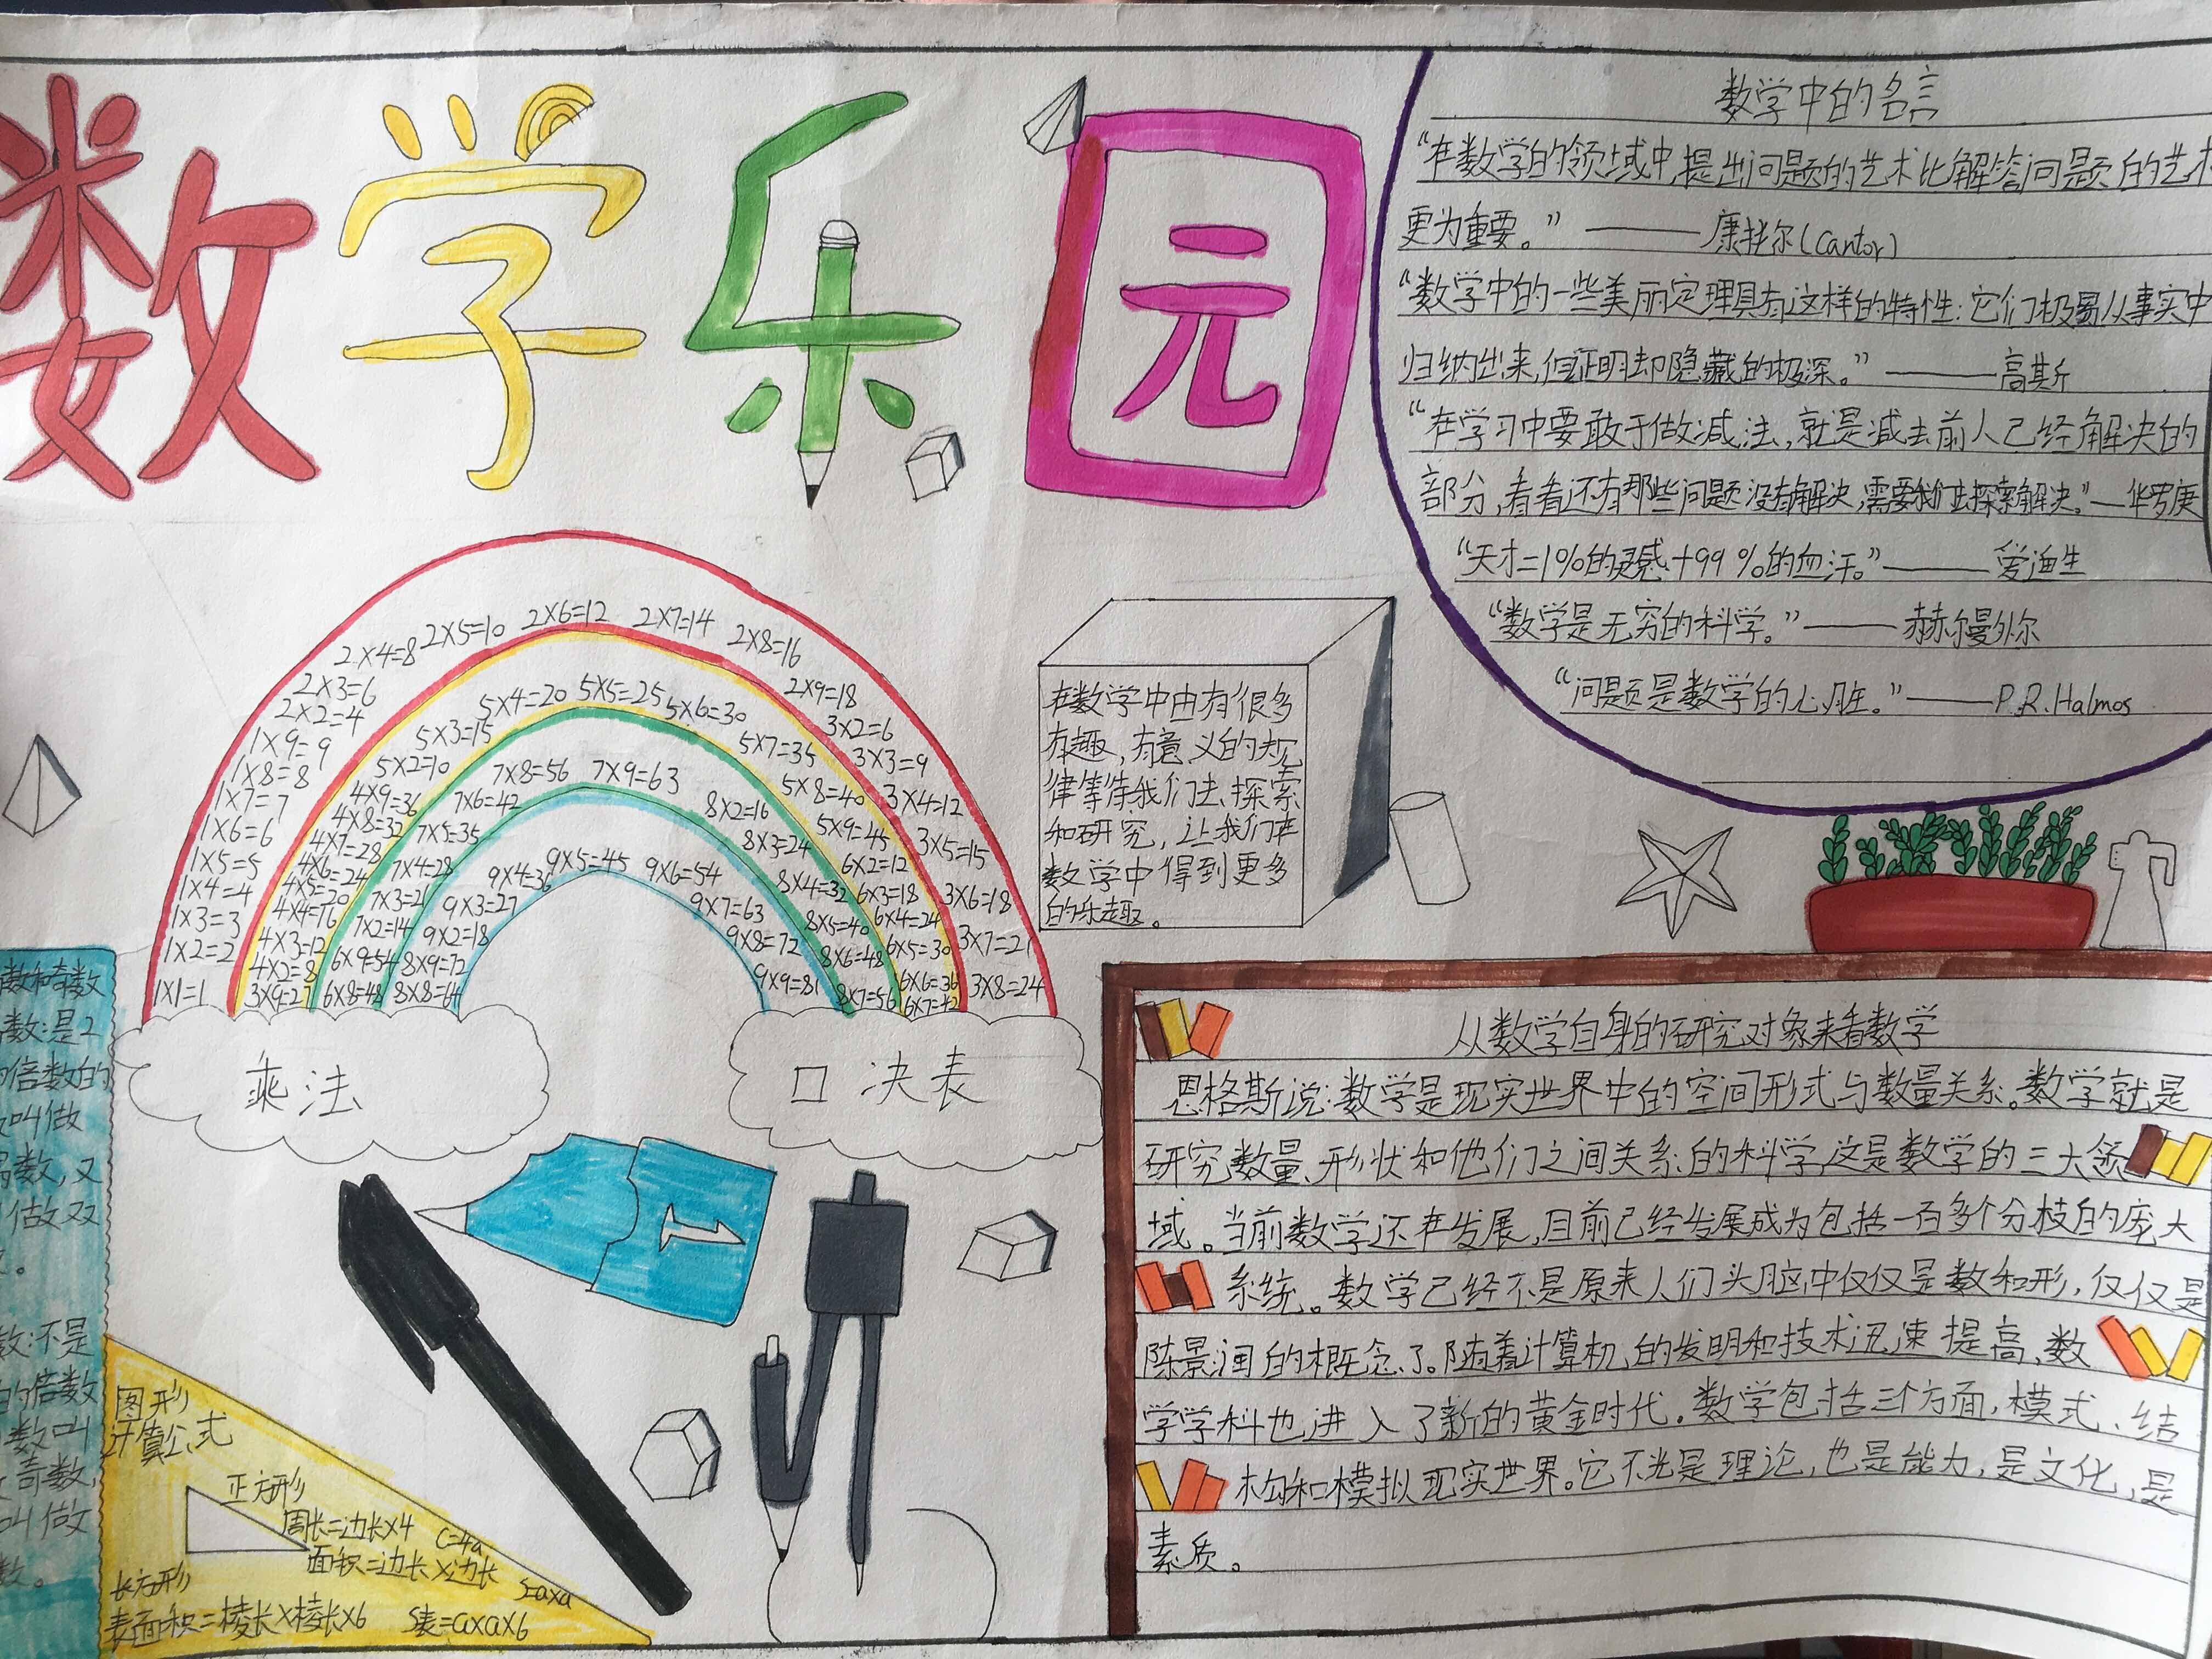 数学乐园
数学中的名言
“在数学的领域中,提出问题的艺术比解答问题的艺术
更为重要。”——康托尔(Cantor)
“数学中的一些美丽定理具有这样的特性:它们极易从事实中
归纳出来,但证明却隐藏的极深。”——高斯
“在学习中要敢于做减法,就是减去前人已经解决的
部分,看看还有那些问题没有解决,需要我们去探索解决。”—华罗庚
“天才=1%的灵感+99%的血汗。”——爱迪生
“数学是无穷的科学。”——赫尔曼外尔
“问题是数学的心脏。”——P.R.Halmos
1×1=1
1×2=2
1×3=3
1×4=4
1×5=5
1×6=6
1×7=7
1×8=8
1×9=9
2×2=4
2×3=6
2×4=8
2×5=10
2×6=12
2×7=14
2×8=16
2×9=18
3×2=6
3×3=9
3×4=12
3×5=15
3×6=18
3×7=21
3×8=24
3×9=27
4×2=8
4×3=12
4×4=16
4×5=20
4×6=24
4×7=28
4×8=32
4×9=36
5×2=10
5×3=15
5×4=20
5×5=25
5×6=30
5×7=35
5×8=40
5×9=45
6×2=12
6×3=18
6×4=24
6×5=30
6×6=36
6×7=42
6×8=48
6×9=54
7×2=14
7×3=21
7×4=28
7×5=35
7×6=42
7×8=56
7×9=63
8×2=16
8×3=24
8×4=32
8×5=40
8×6=48
8×7=56
8×8=64
8×9=72
9×2=18
9×3=27
9×4=36
9×5=45
9×6=54
9×7=63
9×8=72
9×9=81
乘法
口决表
在数学中由有很多
有趣,有意义的规
律等待我们去探索
和研究,让我们在
数学中得到更多
的乐趣。
数和奇数
数:是2
倍数的
叫做
数,又
做双
。
数:不是
的倍数
数叫
奇数,
叫做
数。
图形
计算公式
正方形
周长=边长×4 C=4a
面积=边长×边长 S=a×a
长方形
表面积=棱长×棱长×6 S表=a×a×6
从数学自身的研究对象来看数学
恩格斯说:数学是现实世界中的空间形式与数量关系。数学就是
研究数量、形状和他们之间关系的科学,这是数学的三大领
域。当前数学还在发展,目前已经发展成为包括一百多个分枝的庞大
系统。数学已经不是原来人们头脑中仅仅是数和形,仅仅是
陈景润的概念了。随着计算机的发明和技术迅速提高,数
学学科也进入了新的黄金时代。数学包括三个方面,模式、结
构和模拟现实世界。它不光是理论,也是能力,是文化,是
素质。